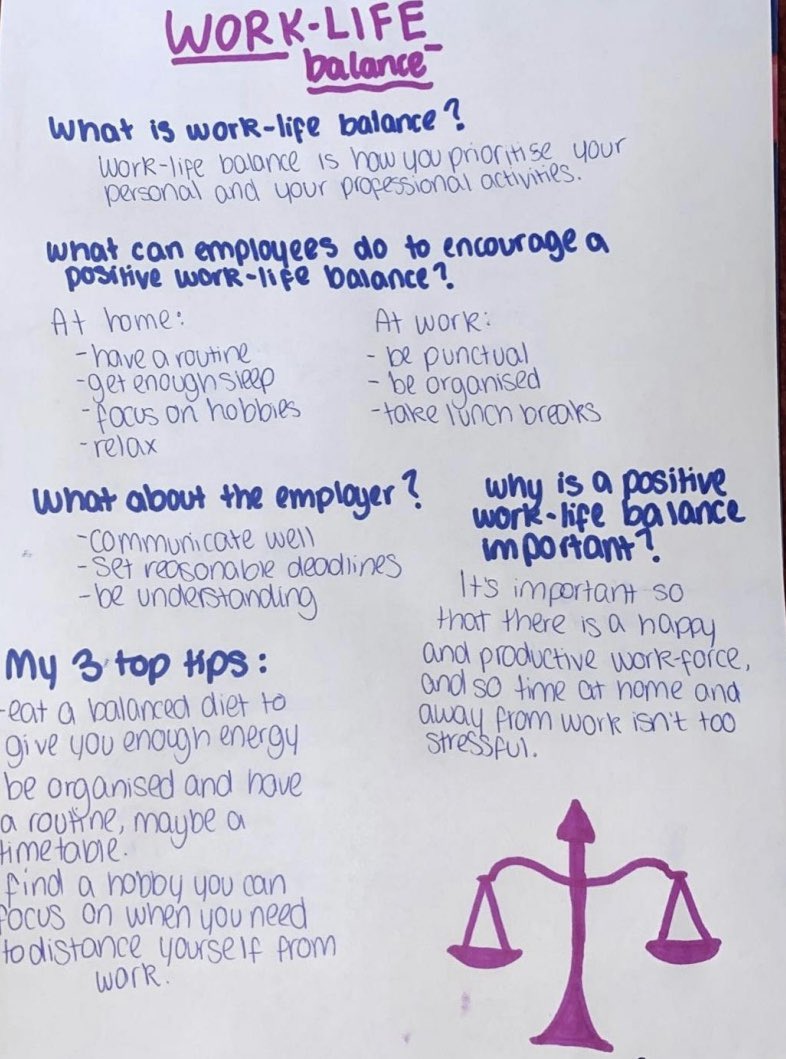 WORK-LIFE
balance
What is work-life balance?
Work-life balance is how you prioritise your
personal and your professional activities.
What can employees do to encourage a
positive work-life balance?
At home:
- have a routine
- get enough sleep
- focus on hobbies
- relax
At work:
- be punctual
- be organised
- take lunch breaks
What about the employer?
- communicate well
- set reasonable deadlines
- be understanding
why is a positive
work-life balance
important?
It's important so
that there is a happy
and productive work-force,
and so time at home and
away from work isn't too
stressful.
My 3 top tips:
- eat a balanced diet to
give you enough energy
be organised and have
a routine, maybe a
timetable.
find a hobby you can
focus on when you need
to distance yourself from
work.